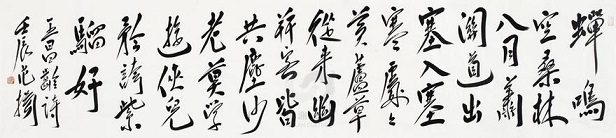 蟬鳴
空桑林
八月蕭
關道出
塞入塞
寒處々
黃蘆草
從來幽
并客皆
共塵沙
老莫學
遊俠兒
矜誇紫
騮好
王昌齡詩
壬辰